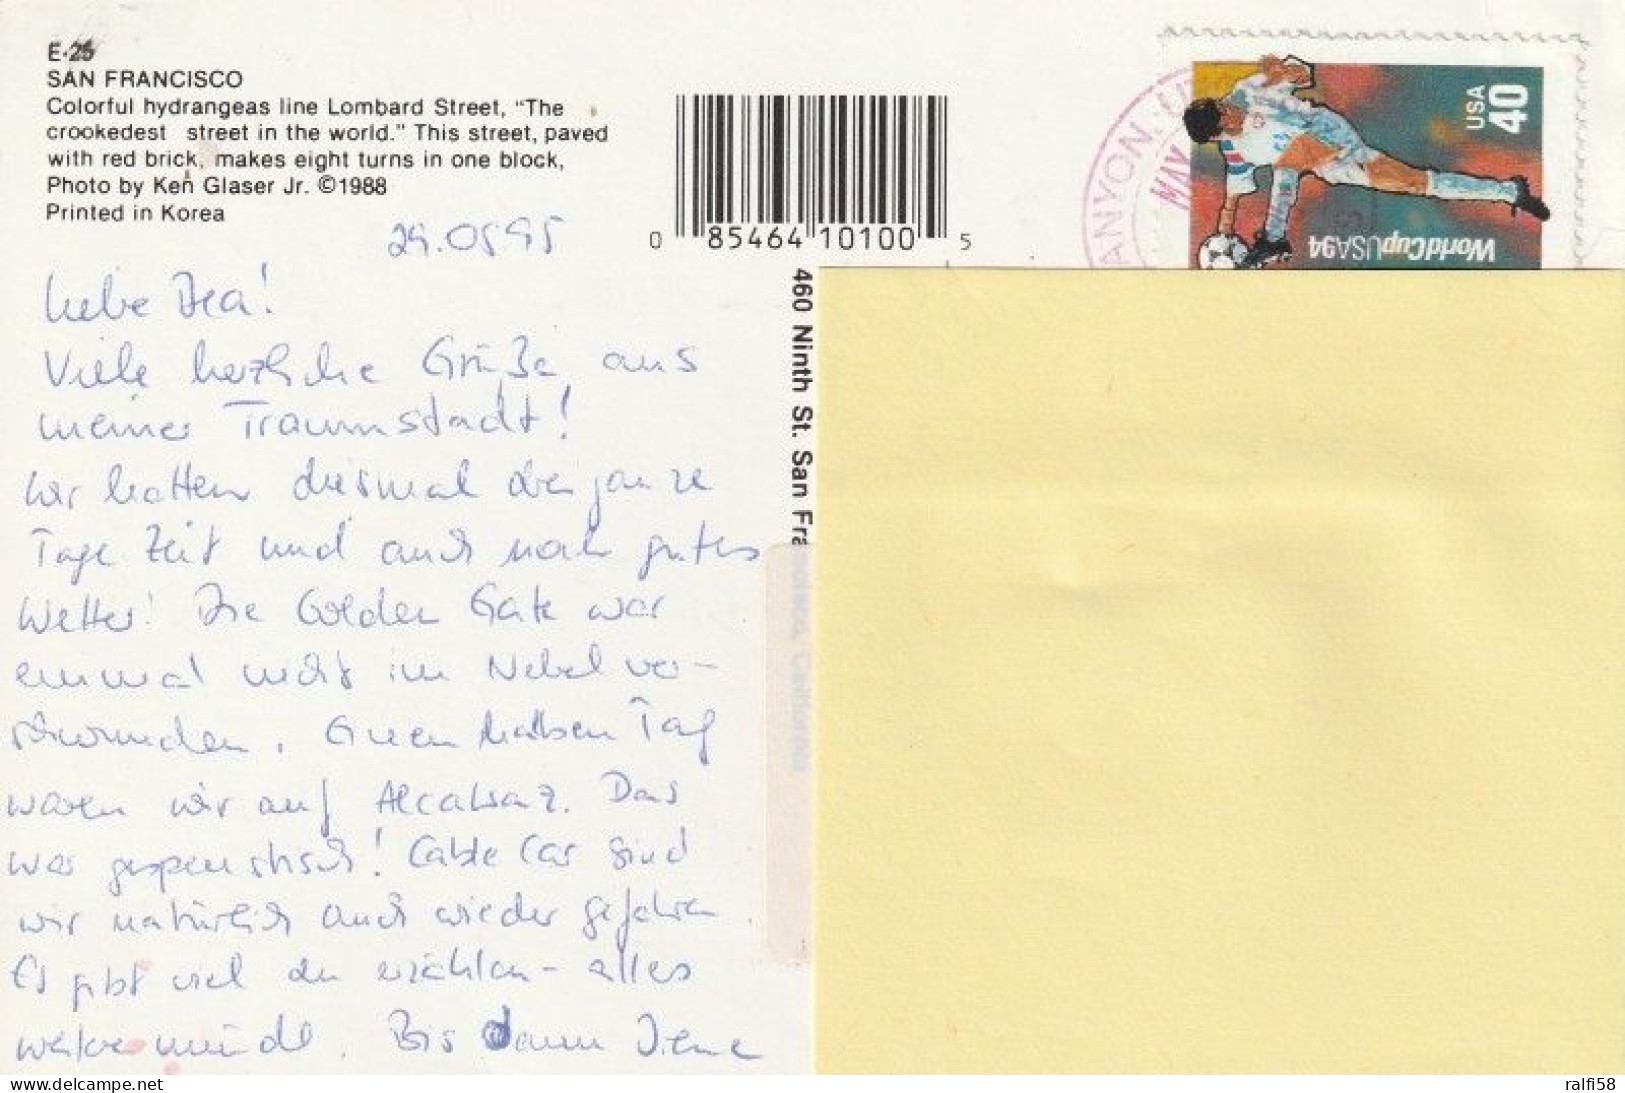 E-25
SAN FRANCISCO
Colorful hydrangeas line Lombard Street, "The
crookedest street in the world." This street, paved
with red brick, makes eight turns in one block,
Photo by Ken Glaser Jr. ©1988
Printed in Korea
0 85464 10100 5
460 Ninth St. San Fra
ANYON
MAY
USA 40
WorldCupUSA94
29.0595
Liebe Thea!
Viele herzliche Grüße aus
meiner Traumstadt!
Wir hatten diesmal drei ganze
Tage Zeit und auch noch gutes
Wetter! Die Golden Gate war
einmal nicht im Nebel ver-
schwunden. Einen halben Tag
waren wir auf Alcatraz. Das
war gespenstisch! Cable Car sind
wir natürlich auch wieder gefahren.
Es gibt viel zu erzählen - alles
weitere mündl. Bis dann Irene
ralfi58